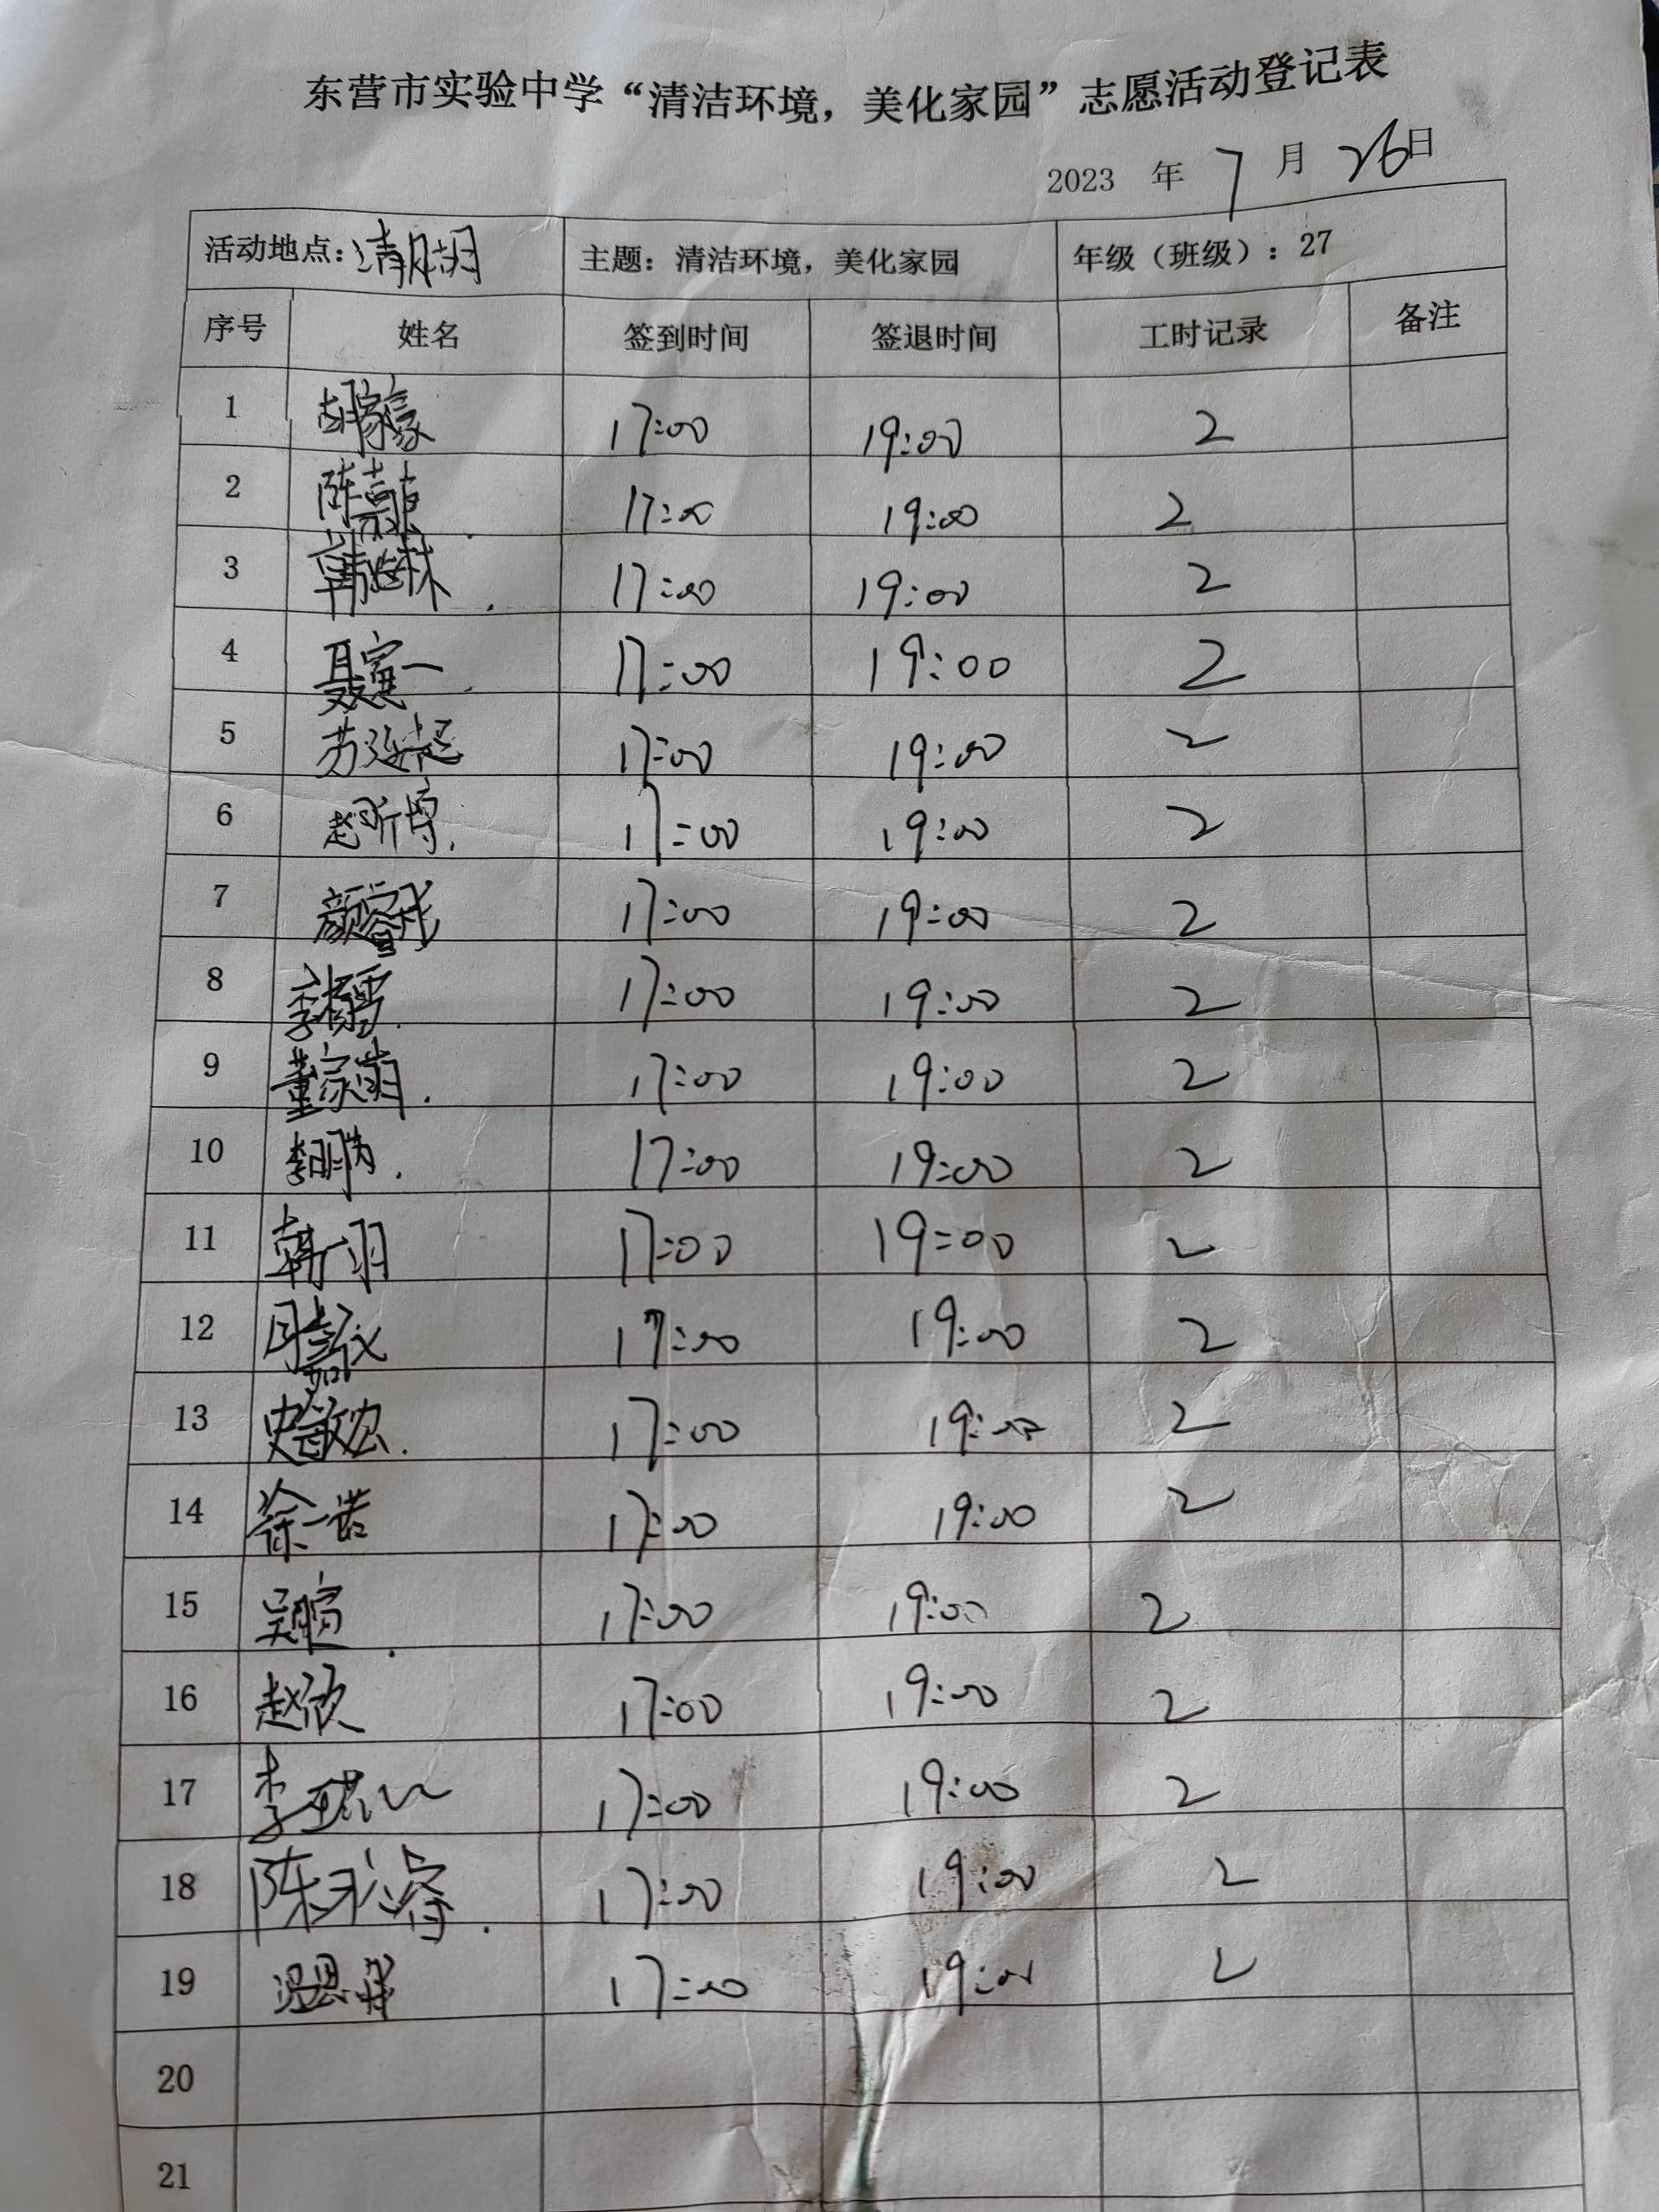 东营市实验中学“清洁环境，美化家园”志愿活动登记表
2023 年 7 月 26日
活动地点：清风湖 主题：清洁环境，美化家园 年级（班级）：27
序号 姓名 签到时间 签退时间 工时记录 备注
1 胡家豪 17:00 19:00 2
2 陈 17:00 19:00 2
3 韩 林 17:00 19:00 2
4 聂寅一 17:00 19:00 2
5 苏延起 17:00 19:00 2
6 赵昕博 17:00 19:00 2
7 颜睿彤 17:00 19:00 2
8 李 雪 17:00 19:00 2
9 董家萌 17:00 19:00 2
10 李 17:00 19:00 2
11 韩一羽 17:00 19:00 2
12 周嘉仪 17:00 19:00 2
13 史 17:00 19:00 2
14 徐一诺 17:00 19:00 2
15 吴 17:00 19:00 2
16 赵欣 17:00 19:00 2
17 李 17:00 19:00 2
18 陈 睿 17:00 19:00 2
19 温 17:00 19:00 2
20
21